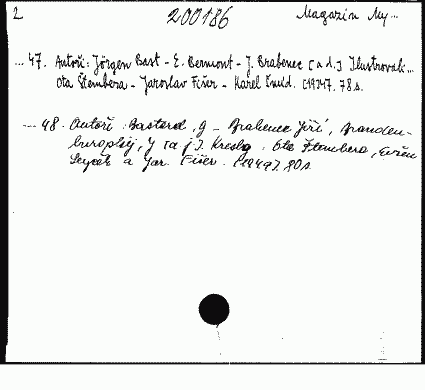 2 200186 Magazin My...
... 47. Autoři: Jörgen Bast - E. Bermont - J. Brabenec [a d.] Ilustrovali...
Ota Štembera - Jaroslav Fišer - Karel [1947]. 78 s.
... 48. Autoři: Bastard, g - Brabenec Jiří, Branden-
burgský, J [a j.]. Kresby: Ota Štembera, Evžen
a Jar. Fišer. [1949]. 80 s.